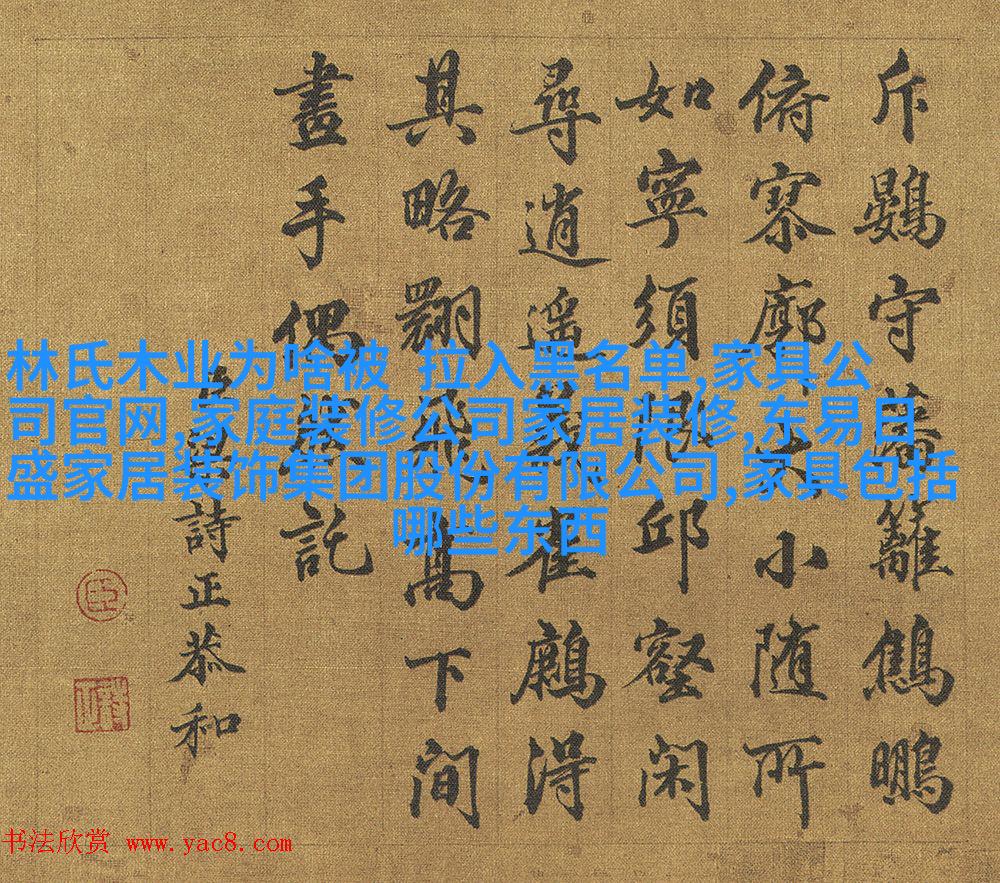 林氏木业为啥被 拉入黑名单,家具公
司官网,家庭装修公司家居装修,东易日
盛家居装饰集团股份有限公司,家具包括
哪些东西
斥鷃守蕃籬鷦鵬
俯寥廓大小随所
如寧須邱壑闲
尋逍遥崔得
其略翾飛高下間
畫手偶託
臣詩正恭和
书法欣赏 www.yac8.com